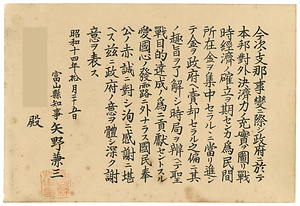 今次支那事變ニ際シ政府ニ於テ
本邦對外決濟力ノ充實ヲ圖リ戰
時經濟ノ確立ヲ期センカ為民間
所在金ヲ集中セラルルニ當リ進ン
テ金ヲ政府ニ賣却セラレタルハ偏ニ其ノ
趣旨ヲ了解シ時局ヲ辨ヘ聖
戰目的達成ノ為ニ貢獻セントスル
愛國心ノ發露ニ外ナラス國民奉
公ノ赤誠ニ對シ洵ニ感謝ニ堪
ヘス茲ニ政府ノ意ヲ體シ深ク謝
意ヲ表ス
昭和十四年 月二十五日
富山縣知事 矢野兼三
殿